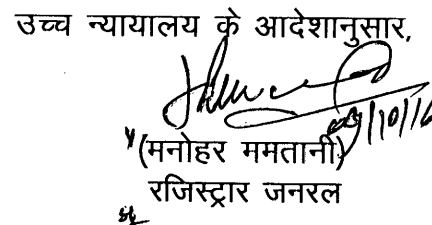 उच्च न्यायालय के आदेशानुसार,
(मनोहर ममतानी)
रजिस्ट्रार जनरल